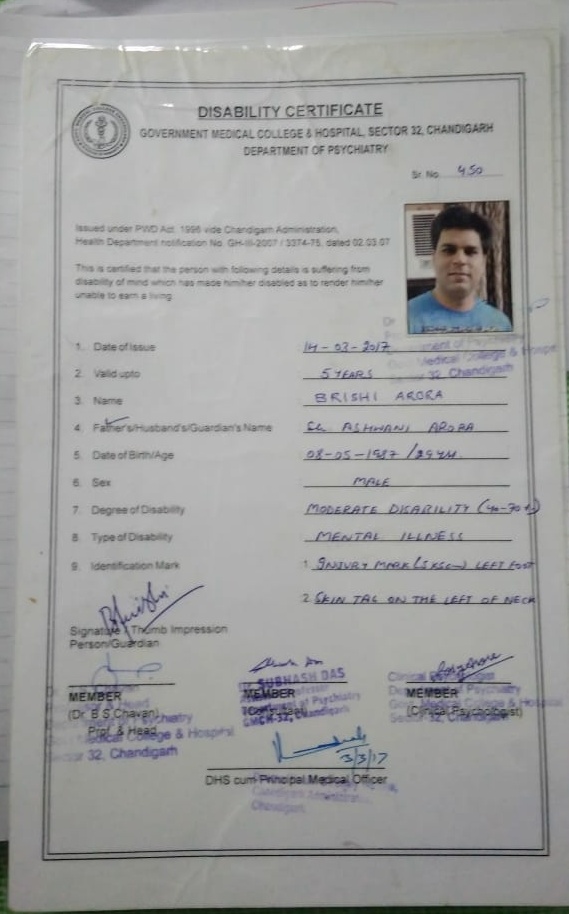 DISABILITY CERTIFICATE
GOVERNMENT MEDICAL COLLEGE & HOSPITAL, SECTOR 32, CHANDIGARH
DEPARTMENT OF PSYCHIATRY
Sr. No. 450
Issued under PWD Act. 1996 vide Chandigarh Administration,
Health Department notification No. GH-III-2007 / 3374-75, dated 02.03.07
This is certified that the person with following details is suffering from
disability of mind which has made him/her disabled as to render him/her
unable to earn a living.
1. Date of Issue 14-03-2017
2. Valid upto 5 YEARS
3. Name BRISHI ARORA
4. Father's/Husband's/Guardian's Name Sh. ASHWANI ARORA
5. Date of Birth/Age 08-05-1987 / 29
6. Sex MALE
7. Degree of Disability MODERATE DISABILITY
8. Type of Disability MENTAL ILLNESS
9. Identification Mark 1. INJURY MARK LEFT FOOT
2. SKIN TAG ON THE LEFT OF NECK
Signature / Thumb Impression
Person/Guardian
MEMBER
(Dr. B.S.Chavan)
Prof. & Head
Medical College & Hospital
32, Chandigarh
SUBHASH DAS
MEMBER
Psychiatry
GMCH-32, Chandigarh
Clinical Psychologist
MEMBER
(Clinical Psychologist)
3/3/17
DHS cum Principal Medical Officer
Chandigarh